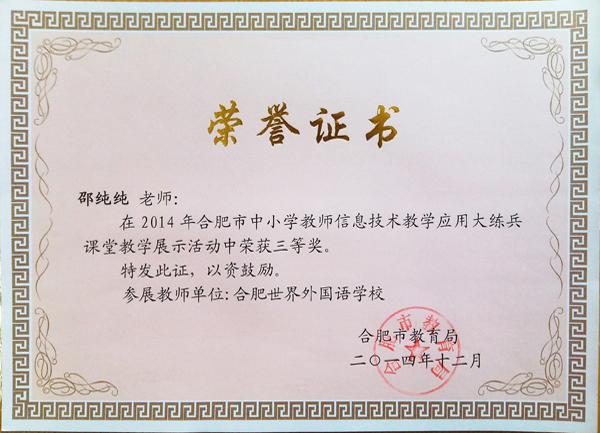 荣誉证书
邵纯纯 老师:
在 2014 年合肥市中小学教师信息技术教学应用大练兵
课堂教学展示活动中荣获三等奖。
特发此证,以资鼓励。
参展教师单位:合肥世界外国语学校
合肥市教育局
二〇一四年十二月
合肥市教育局